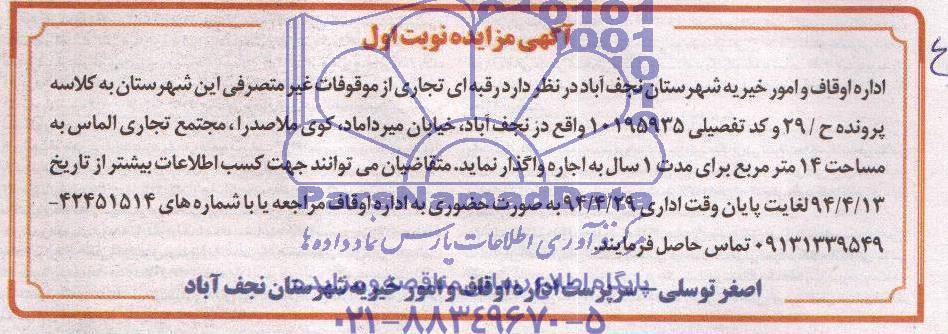 آگهی مزایده نوبت اول
اداره اوقاف و امور خیریه شهرستان نجف آباد در نظر دارد رقبه ای تجاری از موقوفات غیر متصرفی این شهرستان به کلاسه
پرونده ح / ۲۹ و کد تفصیلی ۱۰۱۹۵۹۳۵ واقع در نجف آباد، خیابان میرداماد، کوی ملاصدرا، مجتمع تجاری الماس به
مساحت ۱۴ متر مربع برای مدت ۱ سال به اجاره واگذار نماید. متقاضیان می توانند جهت کسب اطلاعات بیشتر از تاریخ
۹۴/۴/۱۳ لغایت پایان وقت اداری ۹۴/۴/۲۹ به صورت حضوری به اداره اوقاف مراجعه یا با شماره های ۴۲۴۵۱۵۱۴-
۰۹۱۳۱۳۳۹۵۴۹ تماس حاصل فرمایند.
اصغر توسلی - سرپرست اداره اوقاف و امور خیریه شهرستان نجف آباد
ParsNamadData
مرکز فرآوری اطلاعات پارس نماد داده ها
۰۲۱-۸۸۳۴۹۶۷۰-۵